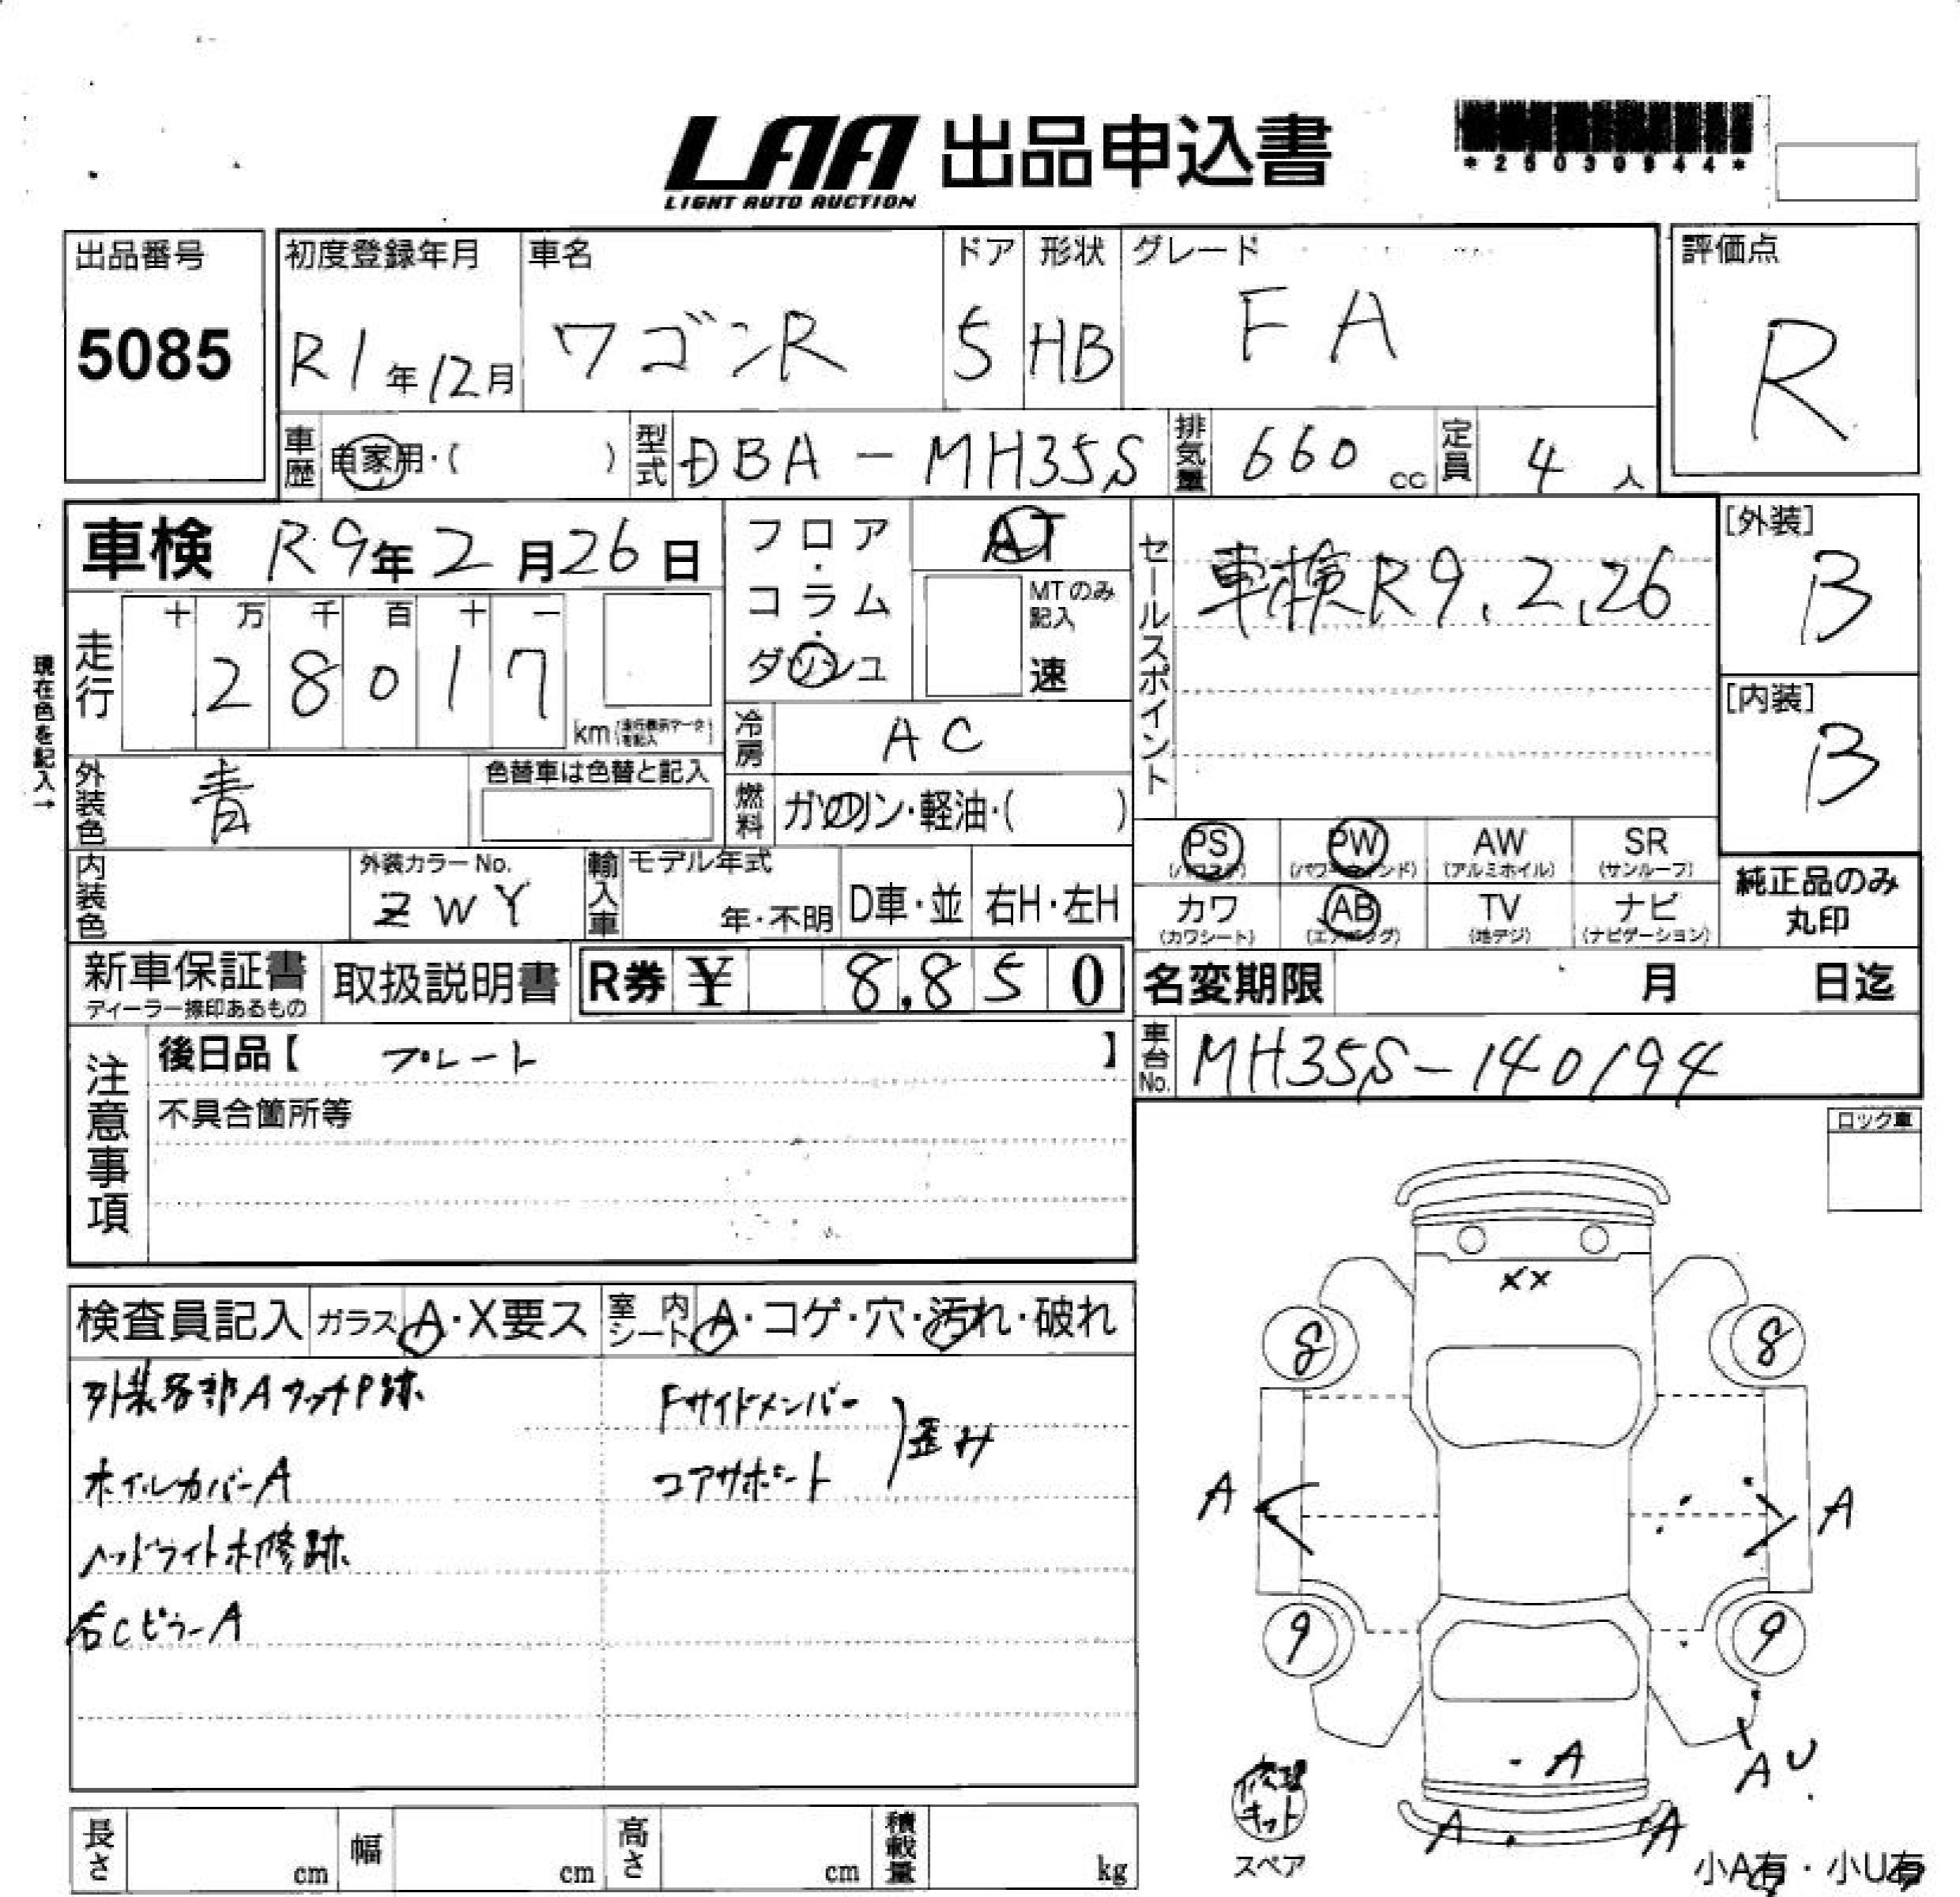 LAA 出品申込書
LIGHT AUTO AUCTION
出品番号 初度登録年月 車名 ドア 形状 グレード 評価点
5085 R1年12月 ワゴンR 5 HB FA R
車歴 自家用・( ) 型式 DBA-MH35S 排気量 660cc 定員 4人
車検 R9年2月26日
フロア・コラム・ダッシュ AT
MTのみ記入
速
セールスポイント 車検R9.2.26
[外装] B
[内装] B
現在色を記入→
走行 十 万 千 百 十 一
28017 km
冷房 AC
外装色 青 色替車は色替と記入
燃料 ガソリン・軽油・( )
PS PW AW SR
(パワステ) (パワーウインド) (アルミホイル) (サンルーフ)
カワ AB TV ナビ
(カワシート) (エアバッグ) (地デジ) (ナビゲーション)
純正品のみ丸印
内装色 外装カラーNo. ZWY
輸入車 モデル年式 年・不明 D車・並 右H・左H
新車保証書 取扱説明書 R券 ¥ 8,850
ディーラー捺印あるもの
名変期限 月 日迄
車台No. MH35S-140194
注意事項
後日品【 プレート 】
不具合箇所等
ロック車
検査員記入 ガラス A・X要ス 室内シート A・コゲ・穴・汚れ・破れ
外装各部AタッチP跡
Fサイドメンバー
コアサポート
歪み
ホイルカバーA
ヘッドライト補修跡
右CピラーA
XX
8 8
A A
9 9
A
A U
A A
修理キット
スペア
小A有・小U有
長さ cm 幅 cm 高さ cm 積載量 kg